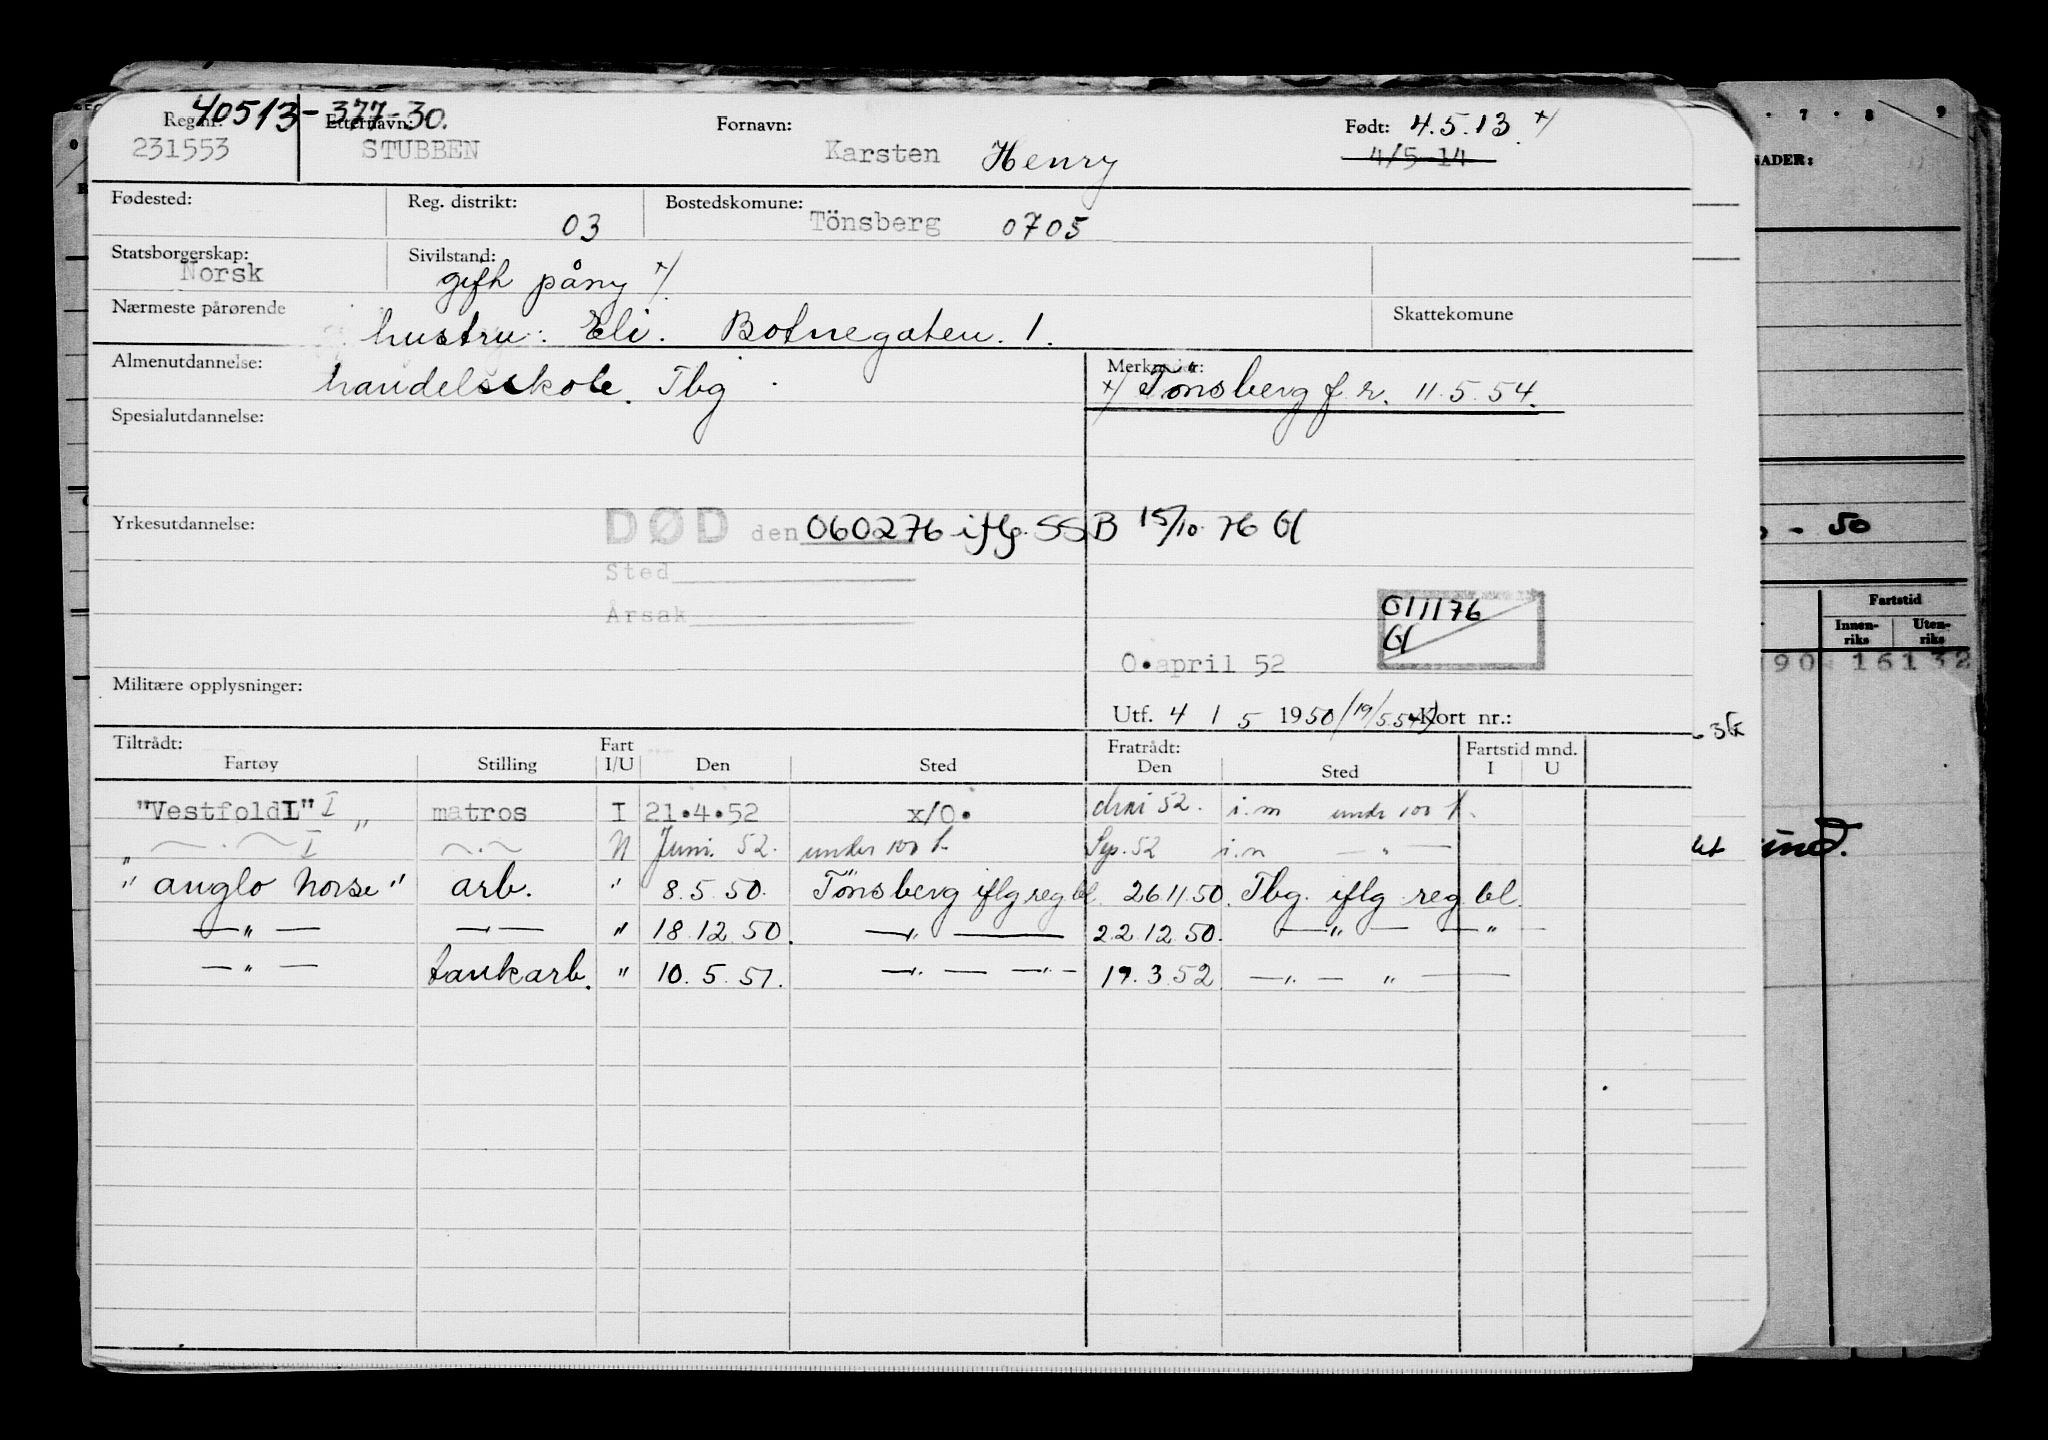 40513-377-30.
Reg.nr. Etternavn: Fornavn: Født: 4.5.13 x/
231553 STUBBEN Karsten Henry 4/5-14
Fødested: Reg. distrikt: Bostedskomune:
03 Tönsberg 0705
Statsborgerskap: Sivilstand:
Norsk gift påny x/
Nærmeste pårørende Skattekomune
hustru: Eli. Botnegaten. 1.
Almenutdannelse: Merknader:
handelsskole. Tbg x/ Tönsberg f.r. 11.5.54.
Spesialutdannelse:
Yrkesutdannelse: DØD den 060276 iflg. SSB 15/10-76 Gl
Sted
Årsak
011176
Gl
O.april 52
Militære opplysninger:
Utf. 4 / 5 1950/(19/5.54) Kort nr.:
Tiltrådt: Fart Fratrådt: Fartstid mnd.
Fartøy Stilling I/U Den Sted Den Sted I U
"VestfoldI" I matros I 21.4.52 x/O. Mai 52. i.m under 100 t.
" — . — I " — . — N Juni. 52. under 100 t. Sep. 52 i.m — " —
"anglo norse" arb. " 8.5.50. Tönsberg iflg reg bl 26.11.50. Tbg. iflg reg bl.
— " — — " — " 18.12.50. — " — 22.12.50. — " — — " —
— " — tankarb. " 10.5.51. — " — — " — 19.3.52 — " — " —
7 . 8 9
NADER:
- 50
Fartstid
Innen-riks Uten-riks
90 16132